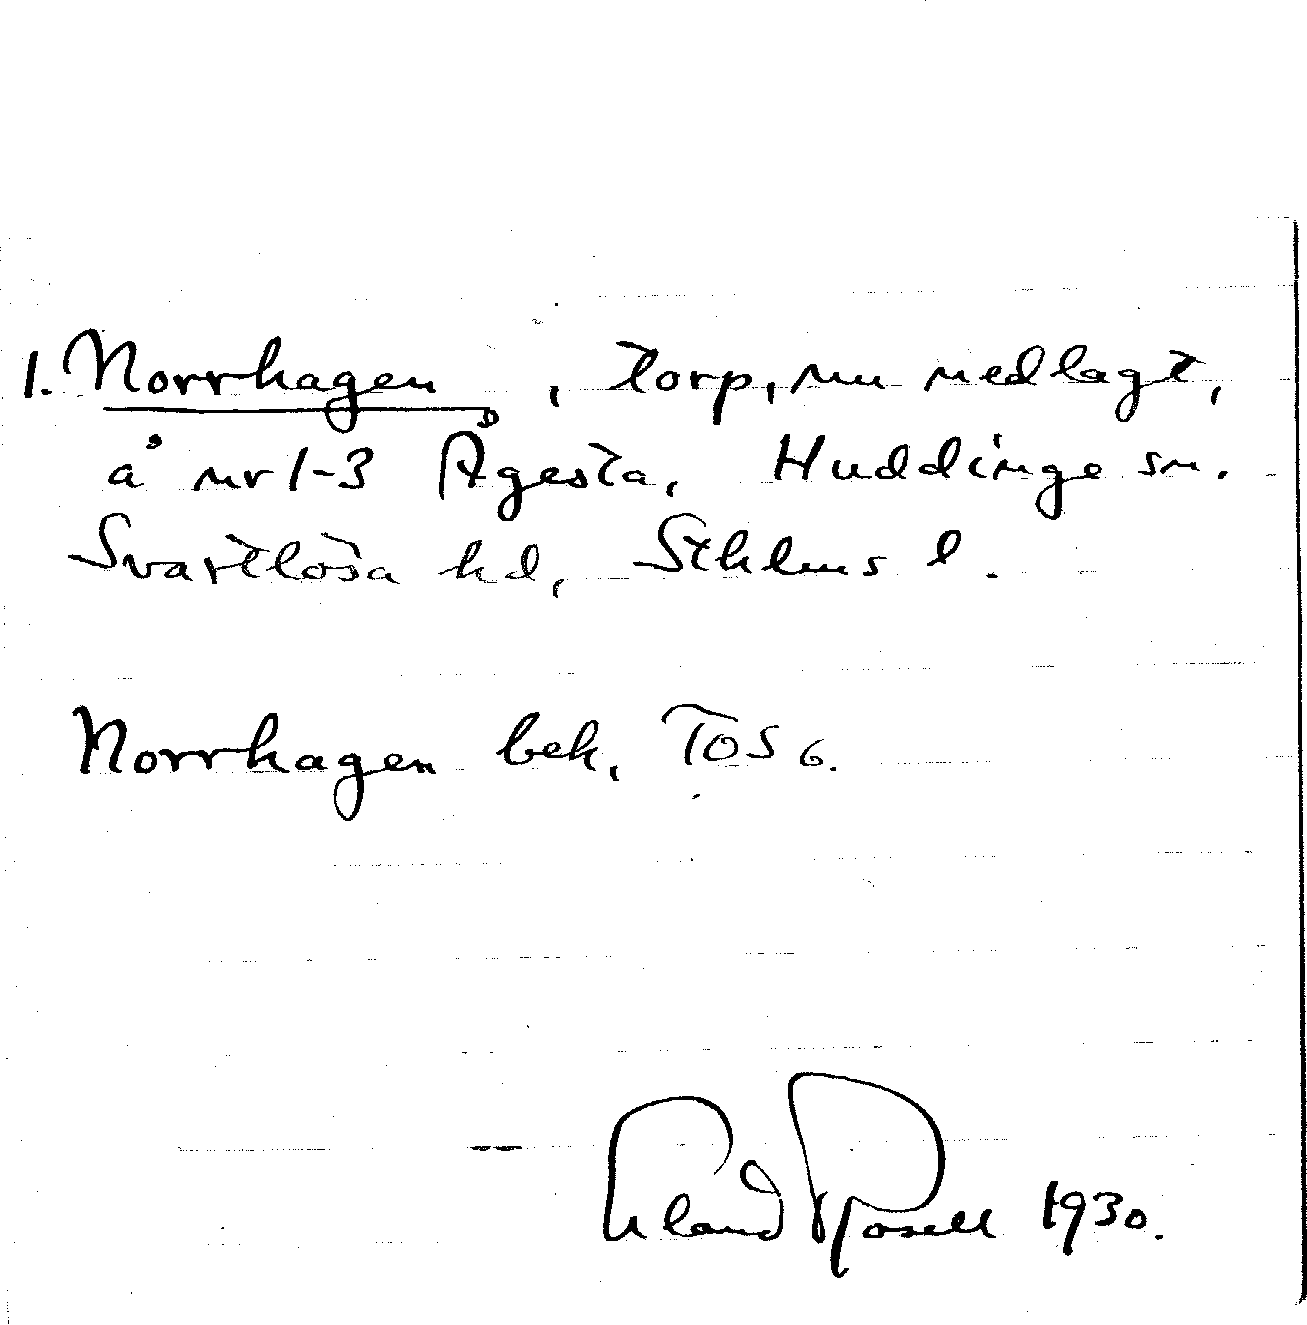 1. Norrhagen, torp, nu nedlagt,
å nr 1-3 Ågesta, Huddinge sn.
Svartlösa hd, Sthlms l.
Norrhagen bek. TOS 6.
Erland Rosell 1930.